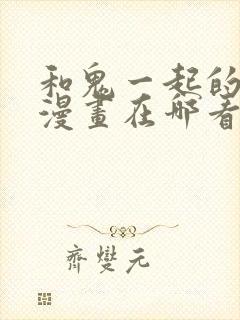 和鬼一起的
漫畫在哪看
齊變元